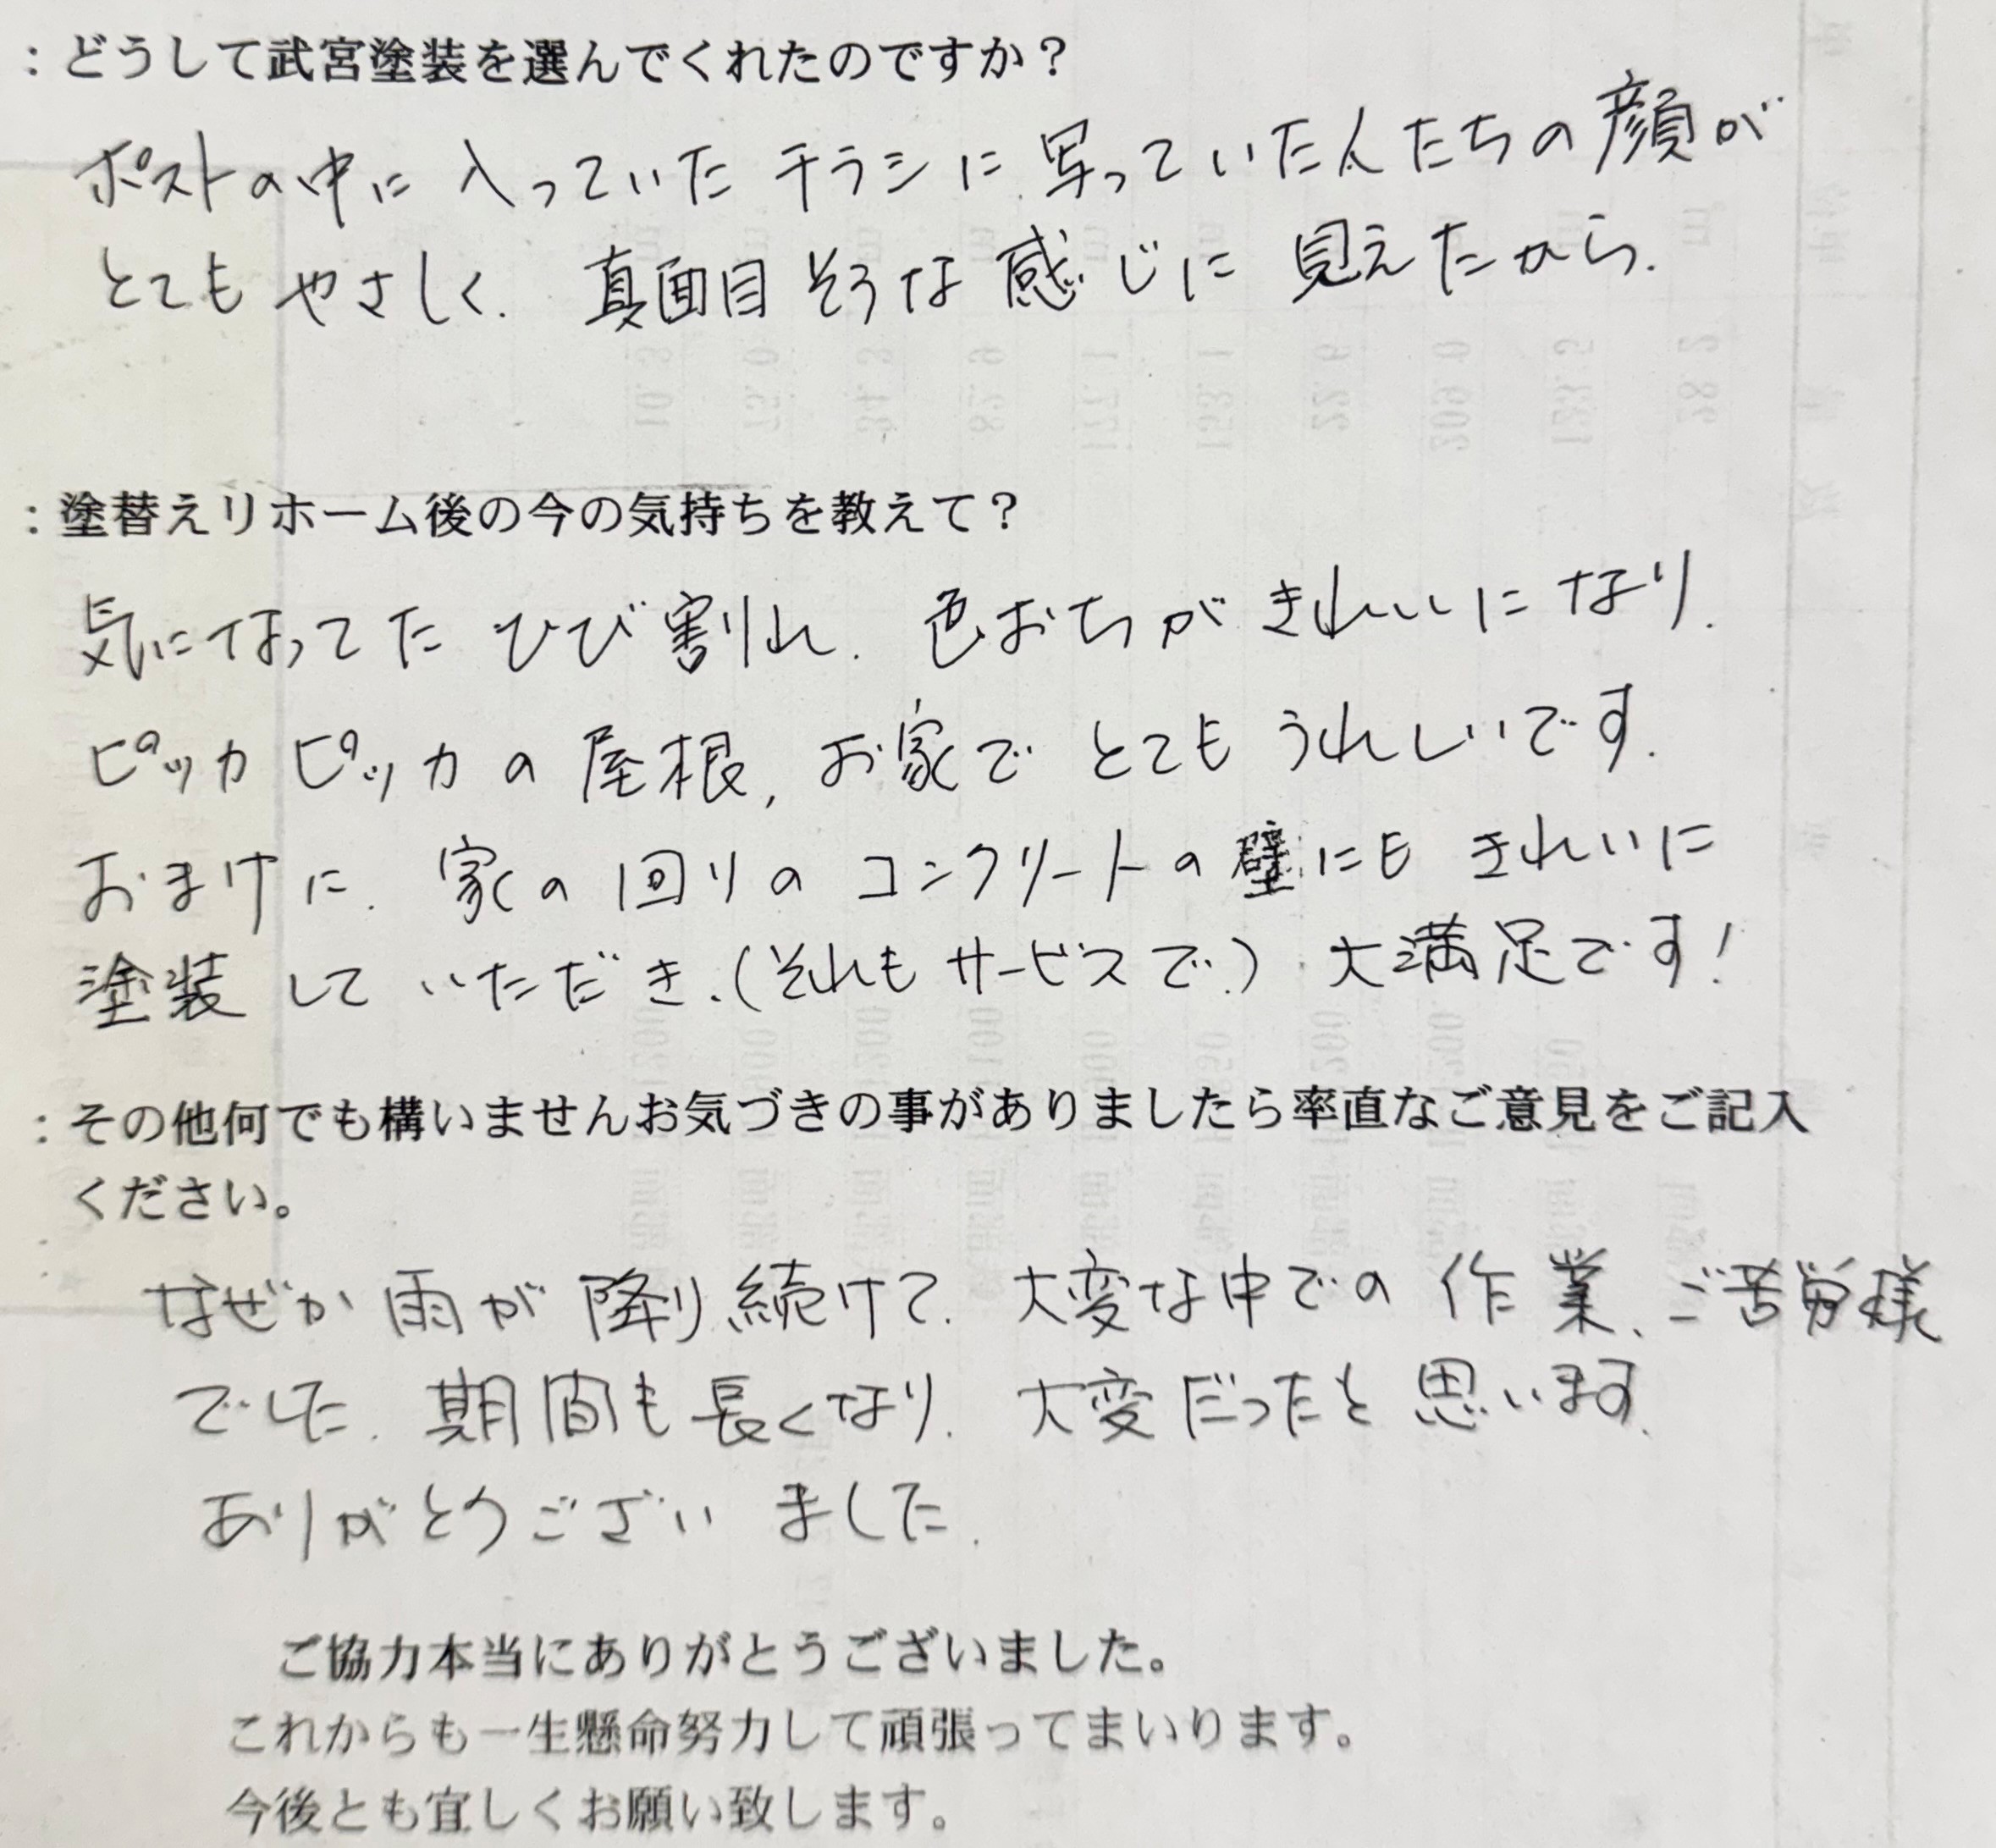 ：どうして武宮塗装を選んでくれたのですか？
ポストの中に入っていたチラシに、写っていた人たちの顔が
とてもやさしく、真面目そうな感じに見えたから。
：塗替えリホーム後の今の気持ちを教えて？
気になってたひび割れ、色おちがきれいになり、
ピッカピッカの屋根、お家でとてもうれしいです。
おまけに、家の回りのコンクリートの壁にもきれいに
塗装していただき、（それもサービスで）、大満足です！
：その他何でも構いませんお気づきの事がありましたら率直なご意見をご記入
ください。
なぜか雨が降り続けて、大変な中での作業、ご苦労様
でした。期間も長くなり、大変だったと思います。
ありがとうございました。
ご協力本当にありがとうございました。
これからも一生懸命努力して頑張ってまいります。
今後とも宜しくお願い致します。